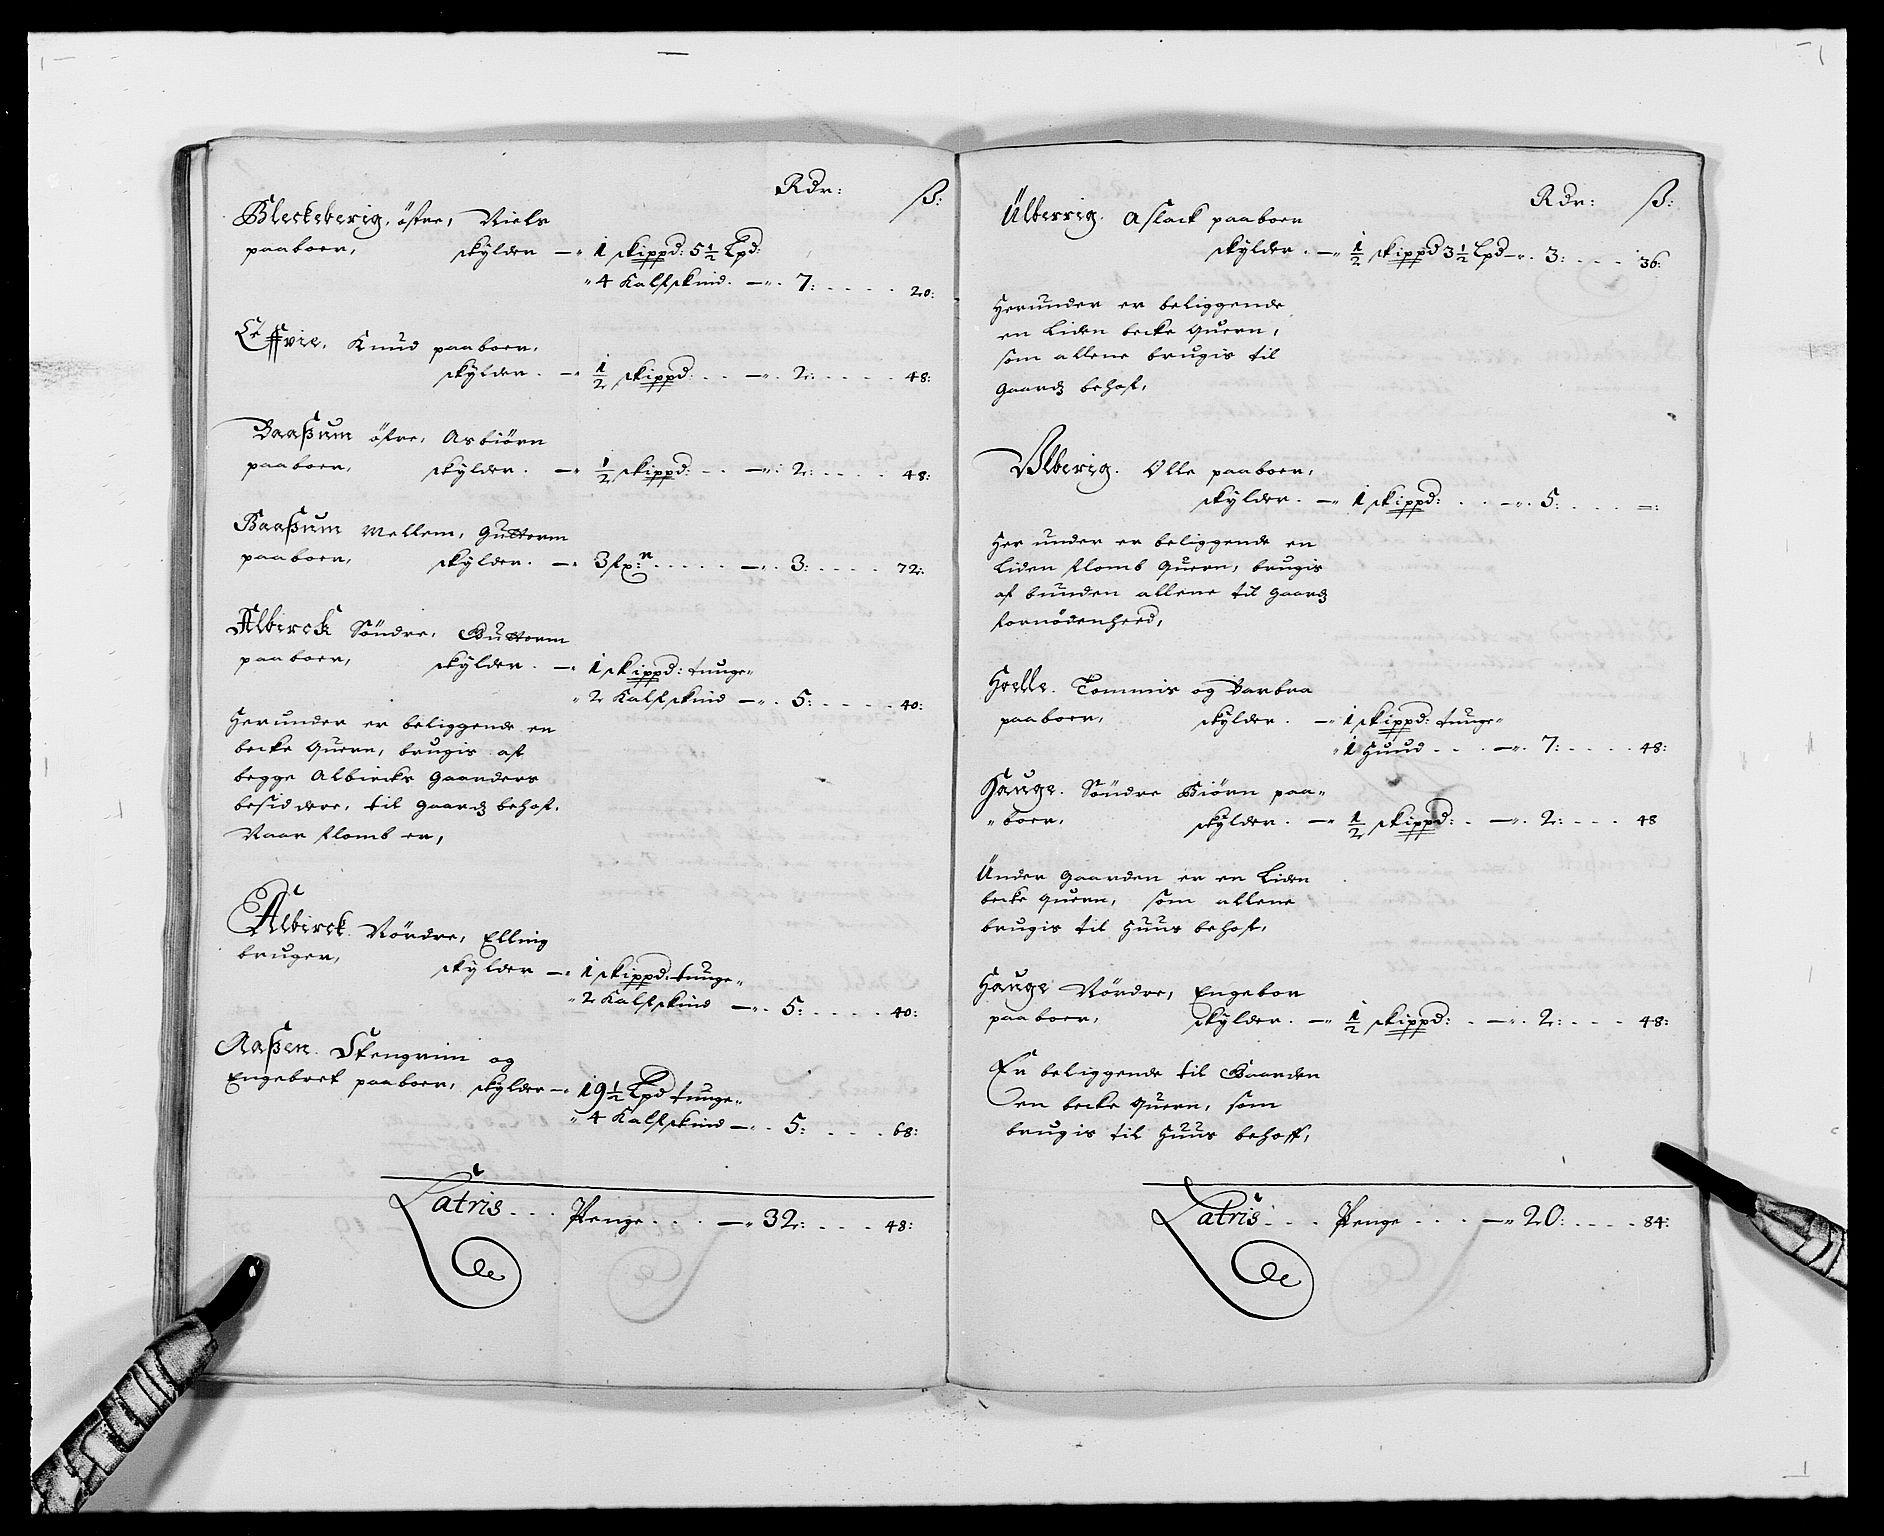 Rdr: ß:
Bleckeberig, östre, Niels
paaboer, skylder — 1 skippd: 5½ Lpd:
4 Kalfskind. — 7: 20:
Knud paaboer,
skylder. — ½ skippd: — 2: 48:
Baaßum östre, Asbiörn
paaboer, skylder. — ½ skippd: — 2: 48:
Baaßum Mellem, Guttorm
paaboer, skylder. — 3 fxr: — 3: 72:
Albirck Söndre, Guttorm
paaboer, skylder. — 1 skippd: tunge
2 Kalfskind — 5: 40:
Herunder er beliggende en
becke Quern, brugis aff
begge Albircks Gaarders
besiddere, til gaardz behof,
Naar flomb er,
Albirck Nördre, Elling
bruger, skylder — 1 skippd: tunge
2 Kalfskind — 5: 40:
Aaßen. Stengrim og
Engebret paaboer, skylder — 19½ Lpd tunge
4 Kalfskind — 5: 68:
Latris . . . Penge . . . — 32: 48:
Rdr: ß:
Ülberrig. Aslack paaboer
skylder. — ½ skippd 3½ Lpd — 3: 36:
Herunder er beliggende
en Liden becke Quern,
som allene brugis til
Gaardz behof,
Ülberig. Olle paaboer,
skylder. — 1 skippd: — 5: —:
Her under er beliggende en
Liden flomb Quern, brugis
af bunden allene til gaardz
fornödenheed,
Hoelle. Tommis og Barbra
paaboer, skylder. — 1 skippd: tunge
1 Huud — 7: 48:
Hauge. Söndre Biörn paa-
boer, skylder. — ½ skippd: — 2: 48
Under gaarden er en Liden
becke quern, som allene
brugis til Huus behof,
Hauge Nördre, Engebor
paaboer, skylder. — ½ skippd: — 2: 48:
Er beliggende til Gaarden
en becke Quern, som
brugis til Huus behoff,
Latris . . . Penge . . . — 20: 84: